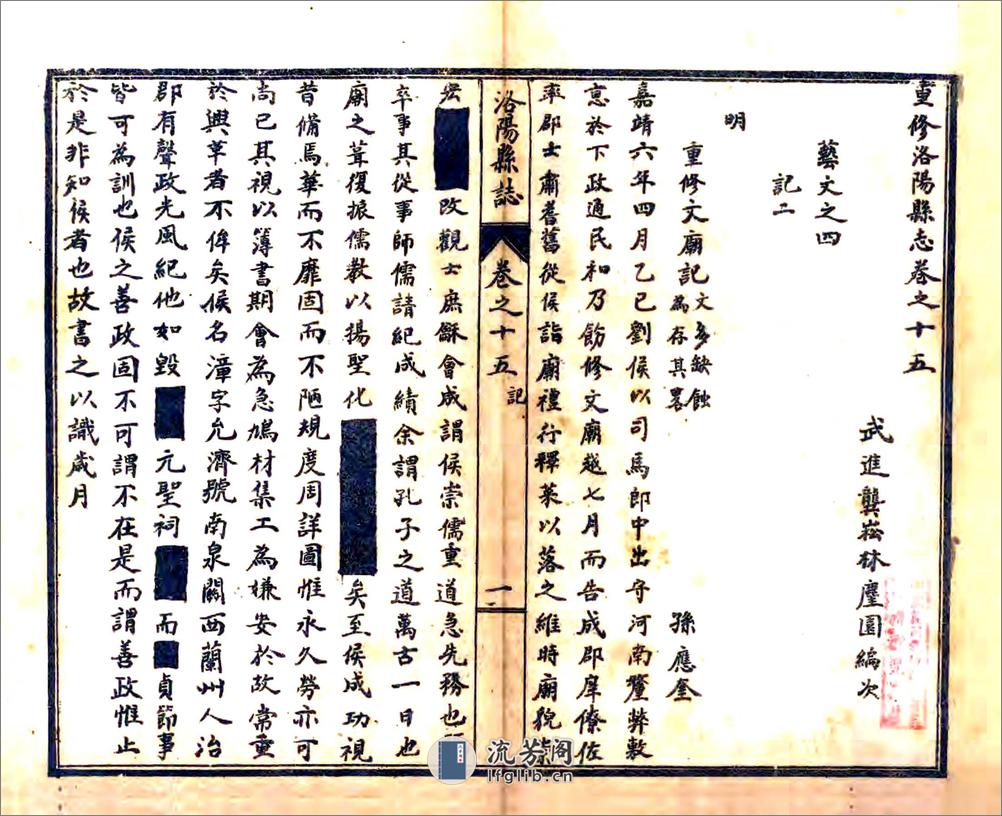 重修洛陽縣志卷之十五
武進龔崧林麈園編次
藝文之四
記二
明
重修文廟記 文多缺蝕
為存其畧
孫應奎
嘉靖六年四月乙巳劉侯以司馬郎中出守河南釐弊敷
恵於下政通民和乃飭修文廟越七月而告成郡庠僚佐
率郡士肅耆舊從侯詣廟禮行釋菜以落之維時廟貌
洛陽縣誌 卷之十五 記 一
改觀士庶龢會成謂侯崇儒重道急先務也
卒事其從事師儒請紀成績余謂孔子之道萬古一日也
廟之葺復振儒教以揚聖化 矣至侯成功視
昔脩焉華而不靡固而不陋規度周詳圖惟永久勞亦可
尚已其視以簿書期會為急鳩材集工為嫌安於故常重
於興革者不侔矣侯名漳字允濟號南泉關西蘭州人治
郡有聲政先風紀他如毀 元聖祠 而 貞節事
皆可為訓也侯之善政固不可謂不在是而謂善政惟止
於是非知侯者也故書之以識歲月
流芳阁
lfglib.cn